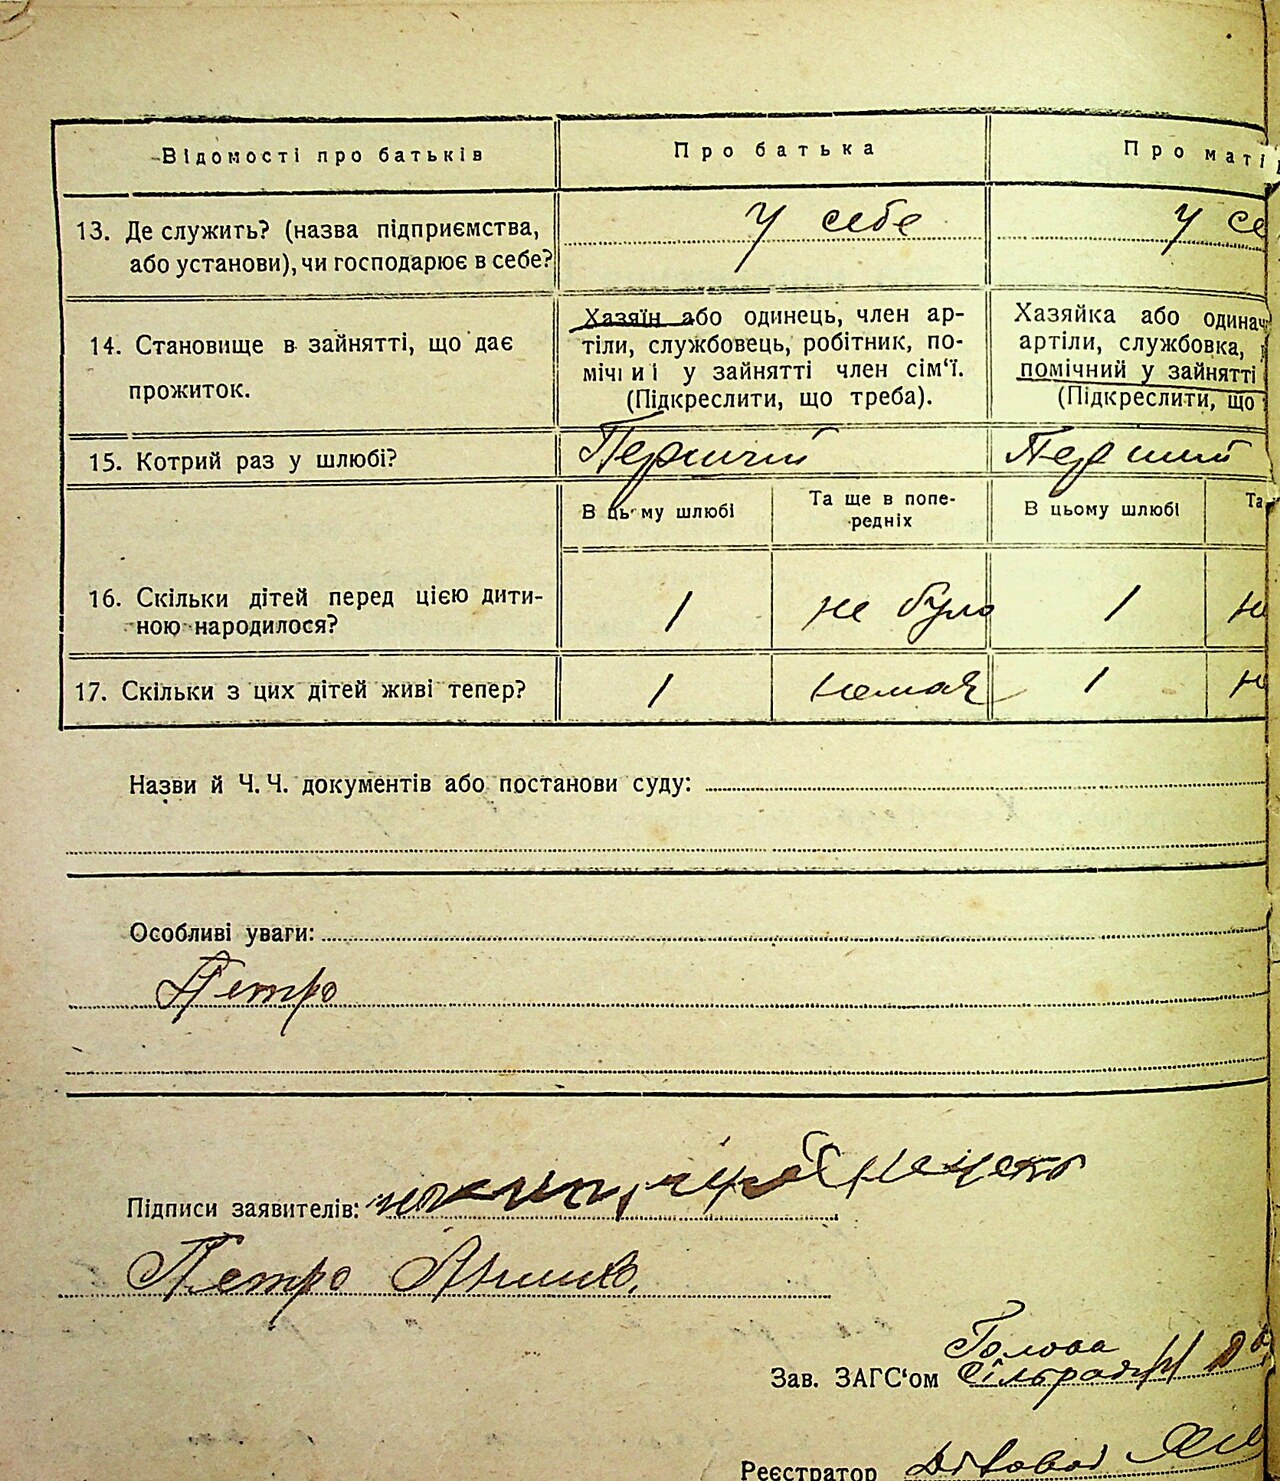 Відомості про батьків
Про батька
Про маті
13. Де служить? (назва підприємства,
або установи), чи господарює в себе?
У себе
У се
14. Становище в зайнятті, що дає
прожиток.
Хазяїн або одинець, член ар-
тіли, службовець, робітник, по-
мічн и і у зайнятті член сім‘ї.
(Підкреслити, що треба).
Хазяйка або одинач
артіли, службовка,
помічний у зайнятті
(Підкреслити, що
15. Котрий раз у шлюбі?
Перший
Перший
В цьому шлюбі
Та ще в попе-
редніх
В цьому шлюбі
Та
16. Скільки дітей перед цією дити-
ною народилося?
1
не було
1
не
17. Скільки з цих дітей живі тепер?
1
немає
1
не
Назви й Ч. Ч. документів або постанови суду:
Особливі уваги:
Петро
Підписи заявителів:
Петро
Голова
Зав. ЗАГС‘ом Сільради
Реєстратор Діловод